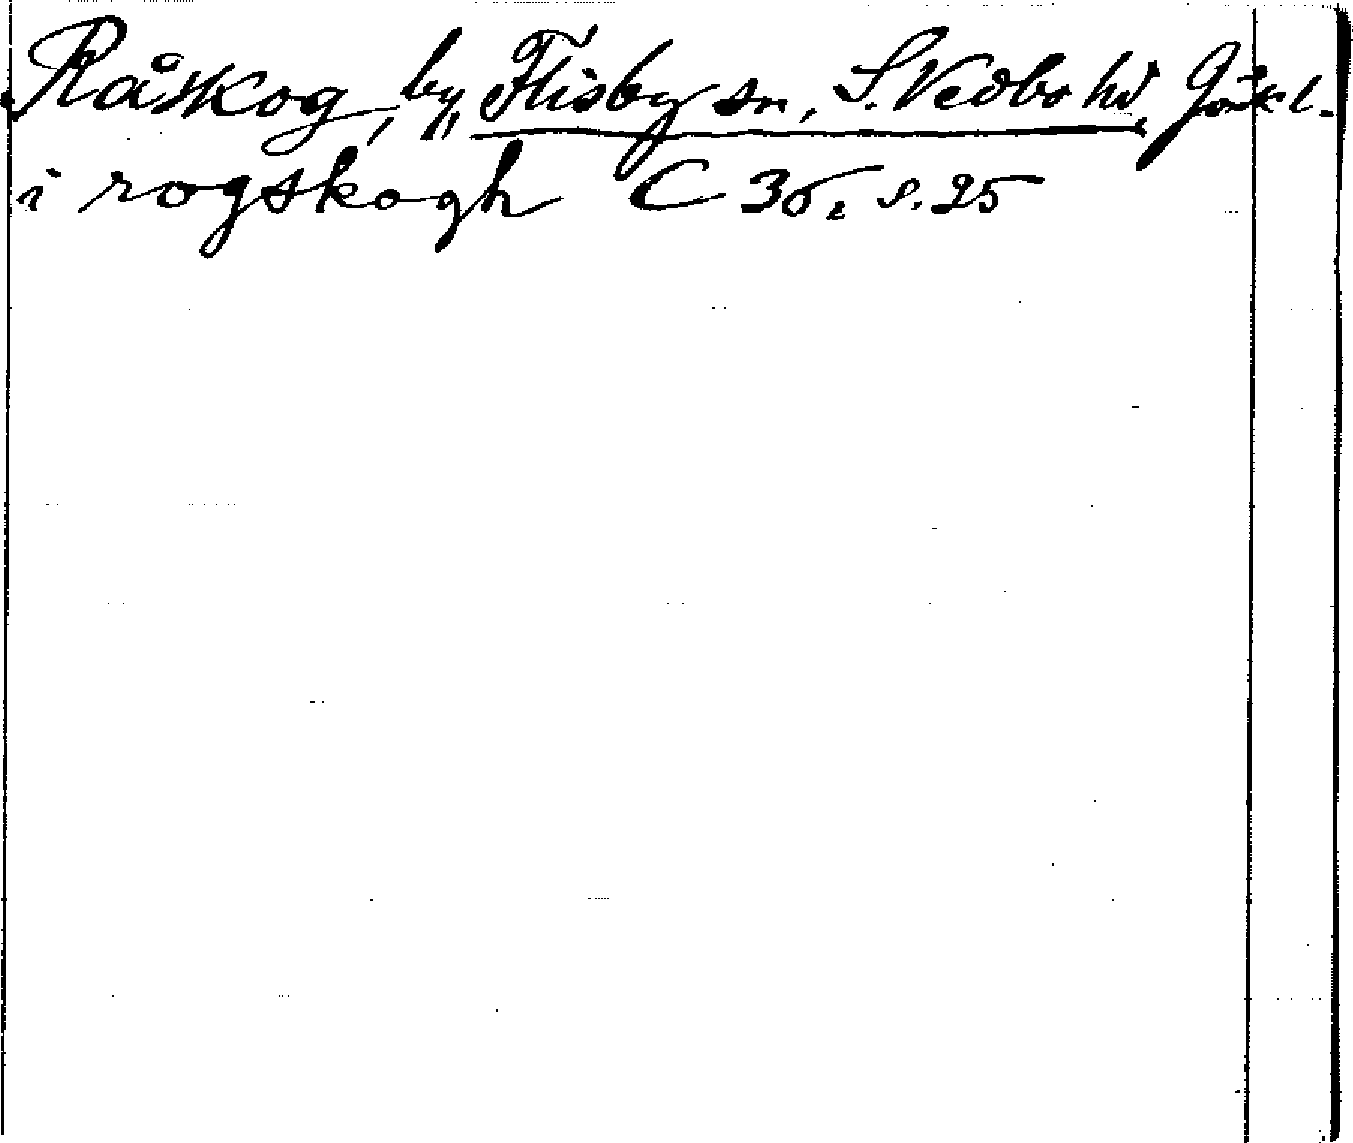 Råskog, by, Flisby sn, S. Vedbo hd, Jönk l.
i rogskogh C 35, s. 25